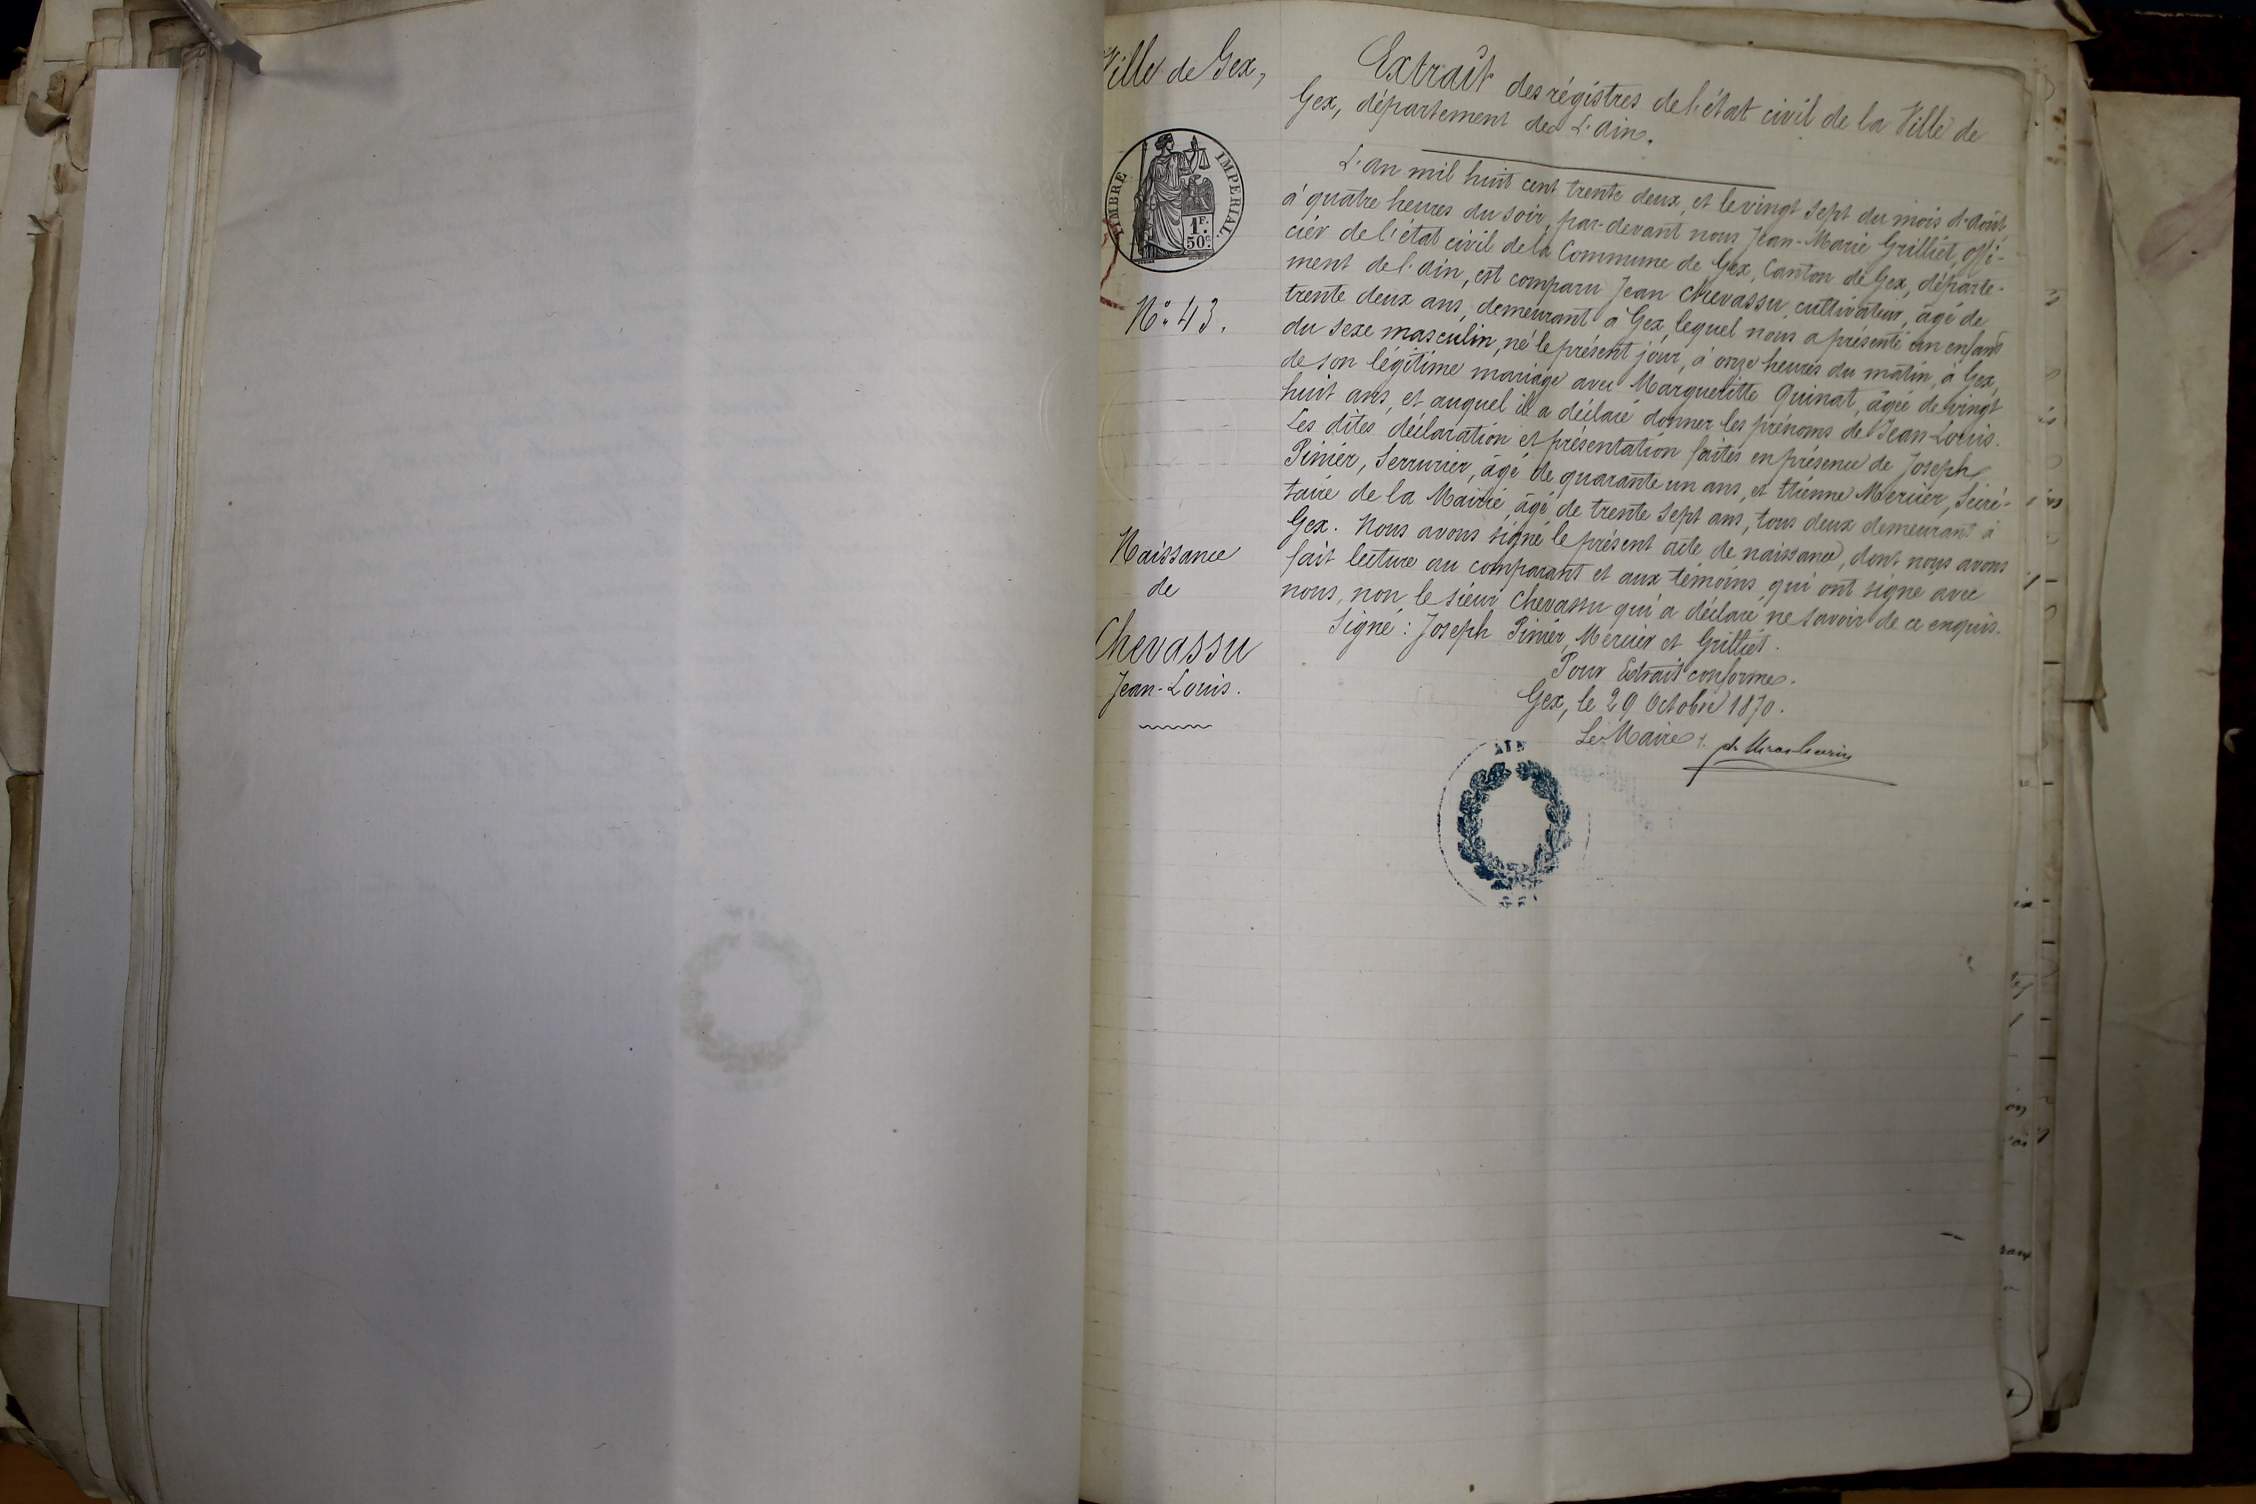 Ville de Gex,
TIMBRE IMPERIAL.
1F.
50c.
N° 43.
Naissance
de
Chevassu
Jean-Louis.
Extrait des régistres de l'état civil de la Ville de
Gex, département de L'ain.
L'an mil huit cent trente deux, et le vingt sept du mois d'août,
à quatre heures du soir, par-devant nous Jean-Marie Grilliet, offi-
cier de l'état civil de la Commune de Gex, Canton de Gex, départe-
ment de l'ain, est comparu Jean Chevassu, cultivateur, âgé de
trente deux ans, demeurant à Gex, lequel nous a présenté un enfant
du sexe masculin, né le présent jour, à onze heures du matin, à Gex,
de son légitime mariage avec Marguerite Quinat, âgée de vingt
huit ans, et auquel il a déclaré donner les prénoms de Jean-Louis.
Les dites déclaration et présentation faites en présence de Joseph
Pinier, Serrurier, âgé de quarante un ans, et Etienne Mercier, Secré-
taire de la Mairie, âgé de trente sept ans, tous deux demeurant à
Gex. Nous avons signé le présent acte de naissance, dont nous avons
fait lecture au comparant et aux témoins, qui ont signé avec
nous, non le sieur Chevassu qui a déclaré ne savoir de ce enquis.
Signé : Joseph Pinier, Mercier et Grilliet.
Pour Extrait conforme.
Gex, le 29 Octobre 1870.
Le Maire
AIN